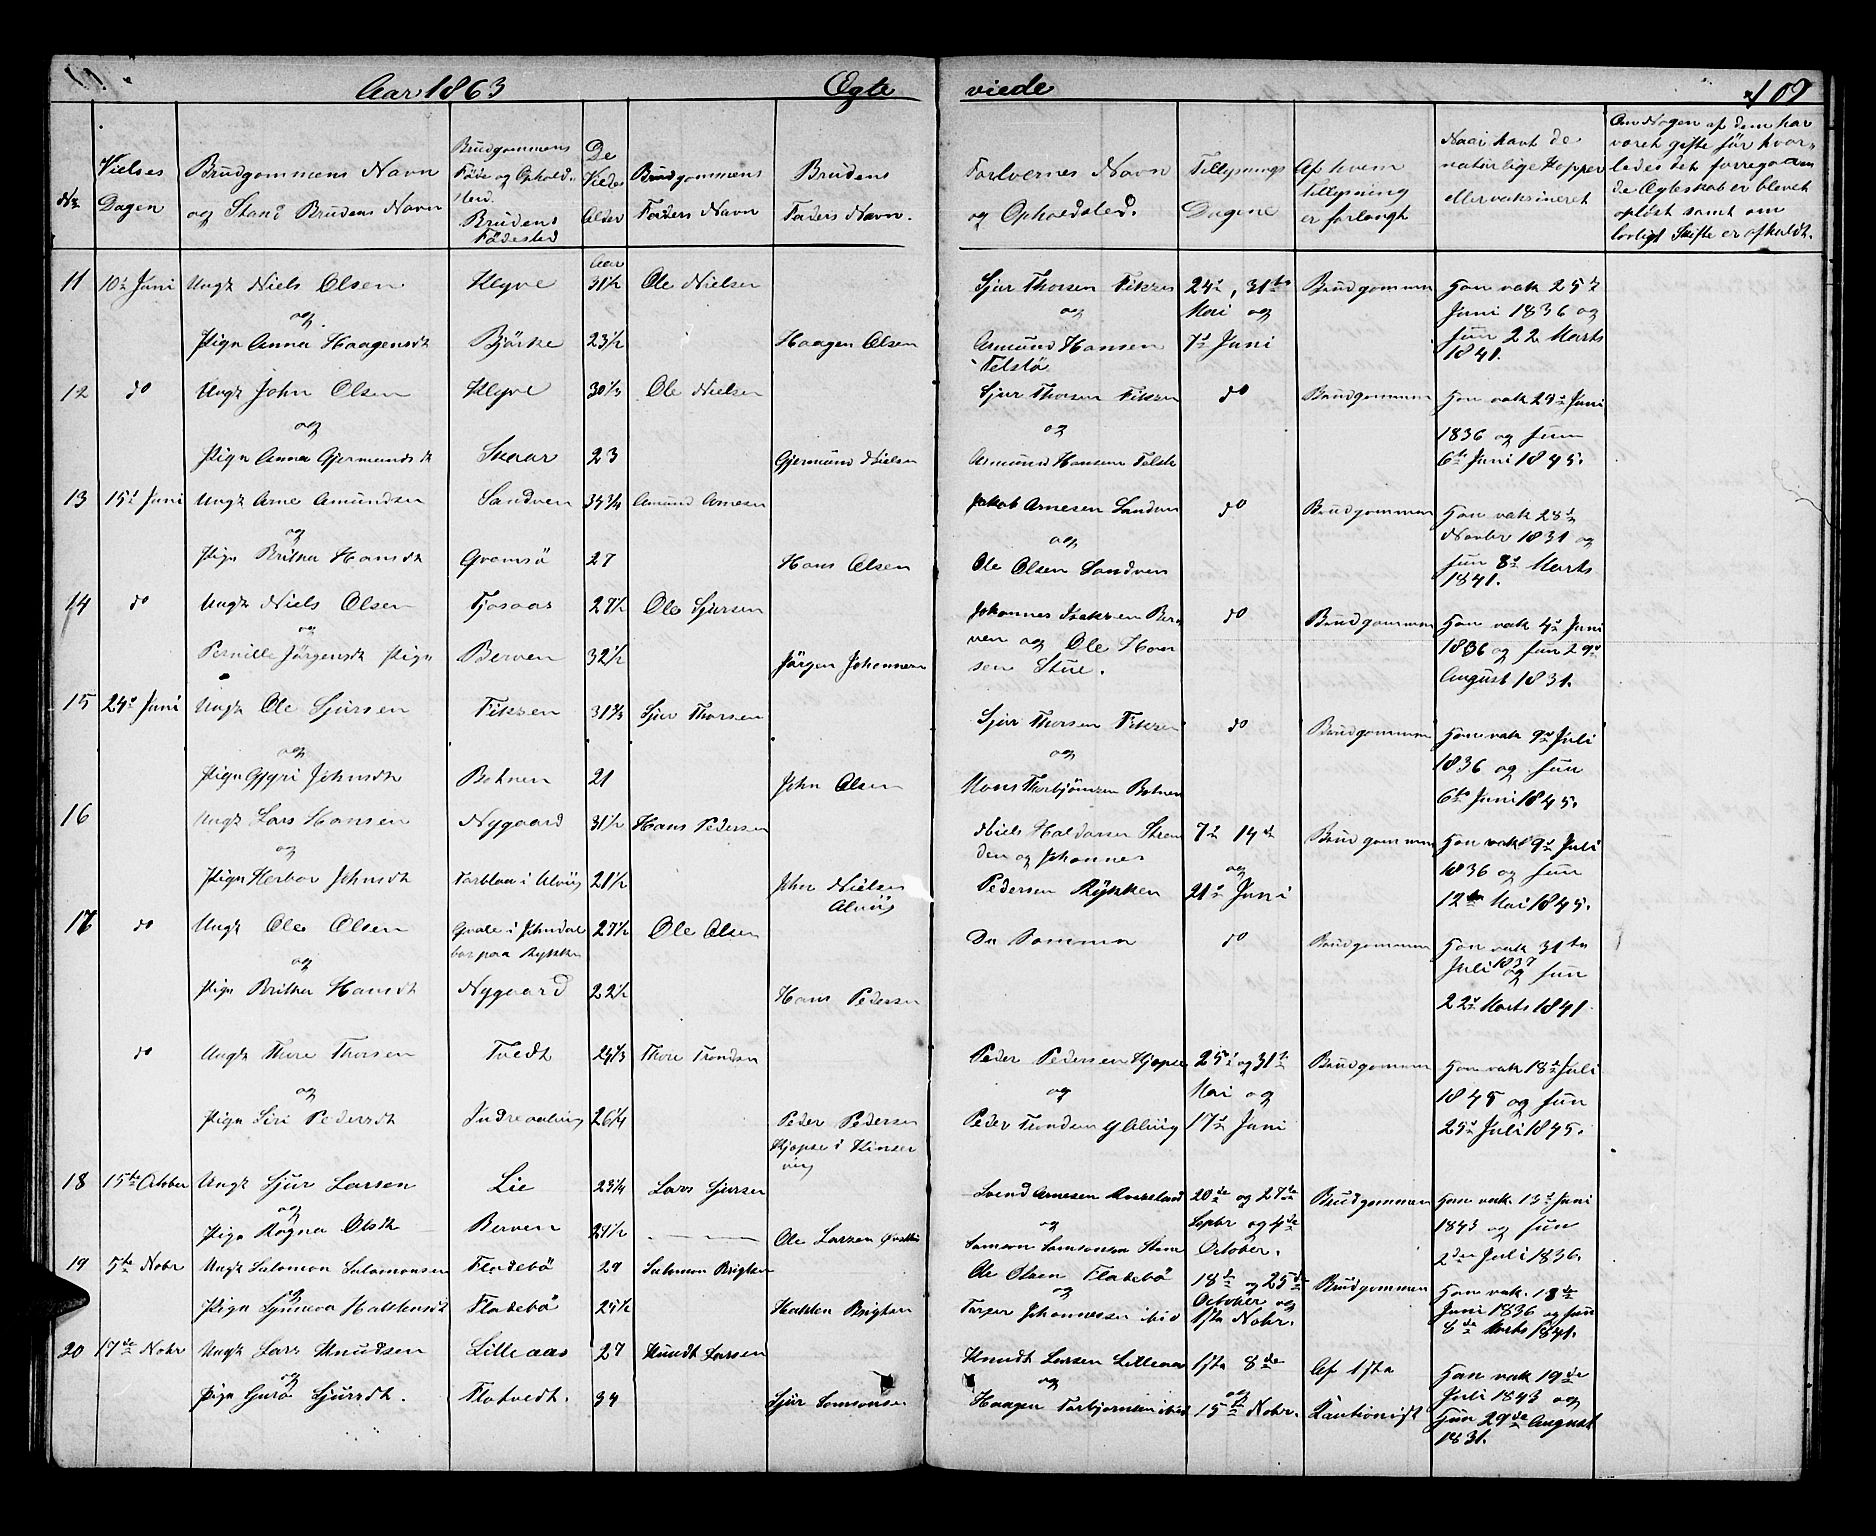 Aar 1863 Ægte viede 109
No
Vielses Dagen
Brudgommens Navn og Stand Brudens Navn
Brudgommens Føde og Opholdsted. Brudens Fødested
De Viedes Alder
Brudgommens Faders Navn
Brudens Faders Navn.
Forlovernes Navn og Opholdsted.
Tillysnings Dagene
Af hvem tillysning er forlangt
Naar havt de naturlige Kopper eller vaksineret
Om Nogen af dem har været gifte før hvorledes det foregaaende Ægteskab er blevet opløst samt om lovligt Skifte er afholdt.
Aar
11 10de Juni Ungk Niels Olsen Klyve 31½ Ole Nielsen Sjur Thorsen Fikzen 24de, 31te Brudgommen Han vak 25de
og og Mai og Juni 1836 og
Pign Anna Haagensdt Bjørke 23½ Haagen Olsen Amund Hansen 7de Juni hun 22 Marts
Telstø 1841.
12 do Ungk John Olsen Klyve 30⅓ Ole Nielsen Sjur Thorsen Fikzen do Brudgommen Han vak 29de Juni
og og 1836 og hun
Pign Anna Gjermundsdt Skaar 23 Gjermund Nielsen Amund Hansen Telstø 6te Juni 1845.
13 15de Juni Ungk Arne Amundsen Sandven 35¾ Amund Arnesen Jakob Arnesen Sandven do Brudgommen Han vak 28de
og og Novbr 1831 og
Pign Britha Hansdt Qvamsø 27 Hans Olsen Ole Olsen Sandven hun 8de Marts
1841.
14 do Ungk Niels Olsen Tjosaas 27½ Ole Sjursen Johannes Isaksen Ber do Brudgommen Han vak 4de Juni
og ven og Ole Han 1836 og hun 29de
Pernille Jørgensdt Pign Berven 32½ Jørgen Johannesen sen Stue. August 1831.
15 24de Juni Ungk Ole Sjursen Fikzen 31⅔ Sjur Thorsen Sjur Thorsen Fikzen do Brudgommen Han vak 9de Juli
og og 1836 og hun
Pign Gygri Johnsdt Botnen 21 John Olsen Mons Thorbjørnsen Botnen 6te Juni 1845.
16 Ungk Lars Hansen Nygaard 31½ Hans Pedersen Niels Haldorsen Steen 7de 14de Brudgommen Han vak 9de Juli
og den og Johannes og 1836 og hun
Pign Herbor Johnsdt i Ulvig 21½ John Nielsen Pedersen Rykken 21de Juni 12te Mai 1845.
Alvig
17 do Ungk Ole Olsen Qvale i Jondal 27½ Ole Olsen De Samme do Brudgommen Han vak 31te
og bor paa Rykken Juli 1837 og hun
Pign Britha Hansdt Nygaard 22½ Hans Pedersen 22de Marts 1841.
do Ungk Thore Thorsen Tvedt 24⅓ Thore Trondsen Peder Pedersen Hjopse 25de og 31te Brudgommen Han vak 18de Juli
og og Mai og 1845 og hun
Pign Siri Pedersdt Indreaalvig 26¼ Peder Pedersen Peder Trondsen Y Alvig 17de Juni 25de Juli 1845.
Hjopse i Kinser
vig
18 15de October Ungk Sjur Larsen Lie 23¼ Lars Sjursen Svend Arnesen 20de og 27de Brudgommen Han vak 13de Juni
og og Septbr og 4de 1843 og hun
Pign Ragna Olsdt Berven 29½ Ole Larsen Samson Samsonsen Steine October. 2den Juli 1836.
19 5te Nobr Ungk Salomon Salomonsen Fladebø 29 Salomon Brigtsen Ole Olsen Fladebø 18de og 25de Brudgommen Han vak. 18de
og og October og Juni 1836 og hun
Pign Synneva Hakkensdt Fladebø 25½ Hakken Brigtsen Johannessen ibid 1ste Nobr. 8de Marts 1841.
20 17de Nobr Ungk Lars Knudsen Lilleaas 27 Knudt Larsen Knudt Larsen Lilleaas 1ste 8de Af 1ste Han vak 19de
og og og Kautionist Juli 1843 og
Pign Guro Sjursdt. Flotvedt. 34 Sjur Samsonsen Haagen Torbjørnsen ibid 15de Nobr. hun 29de August
1831.